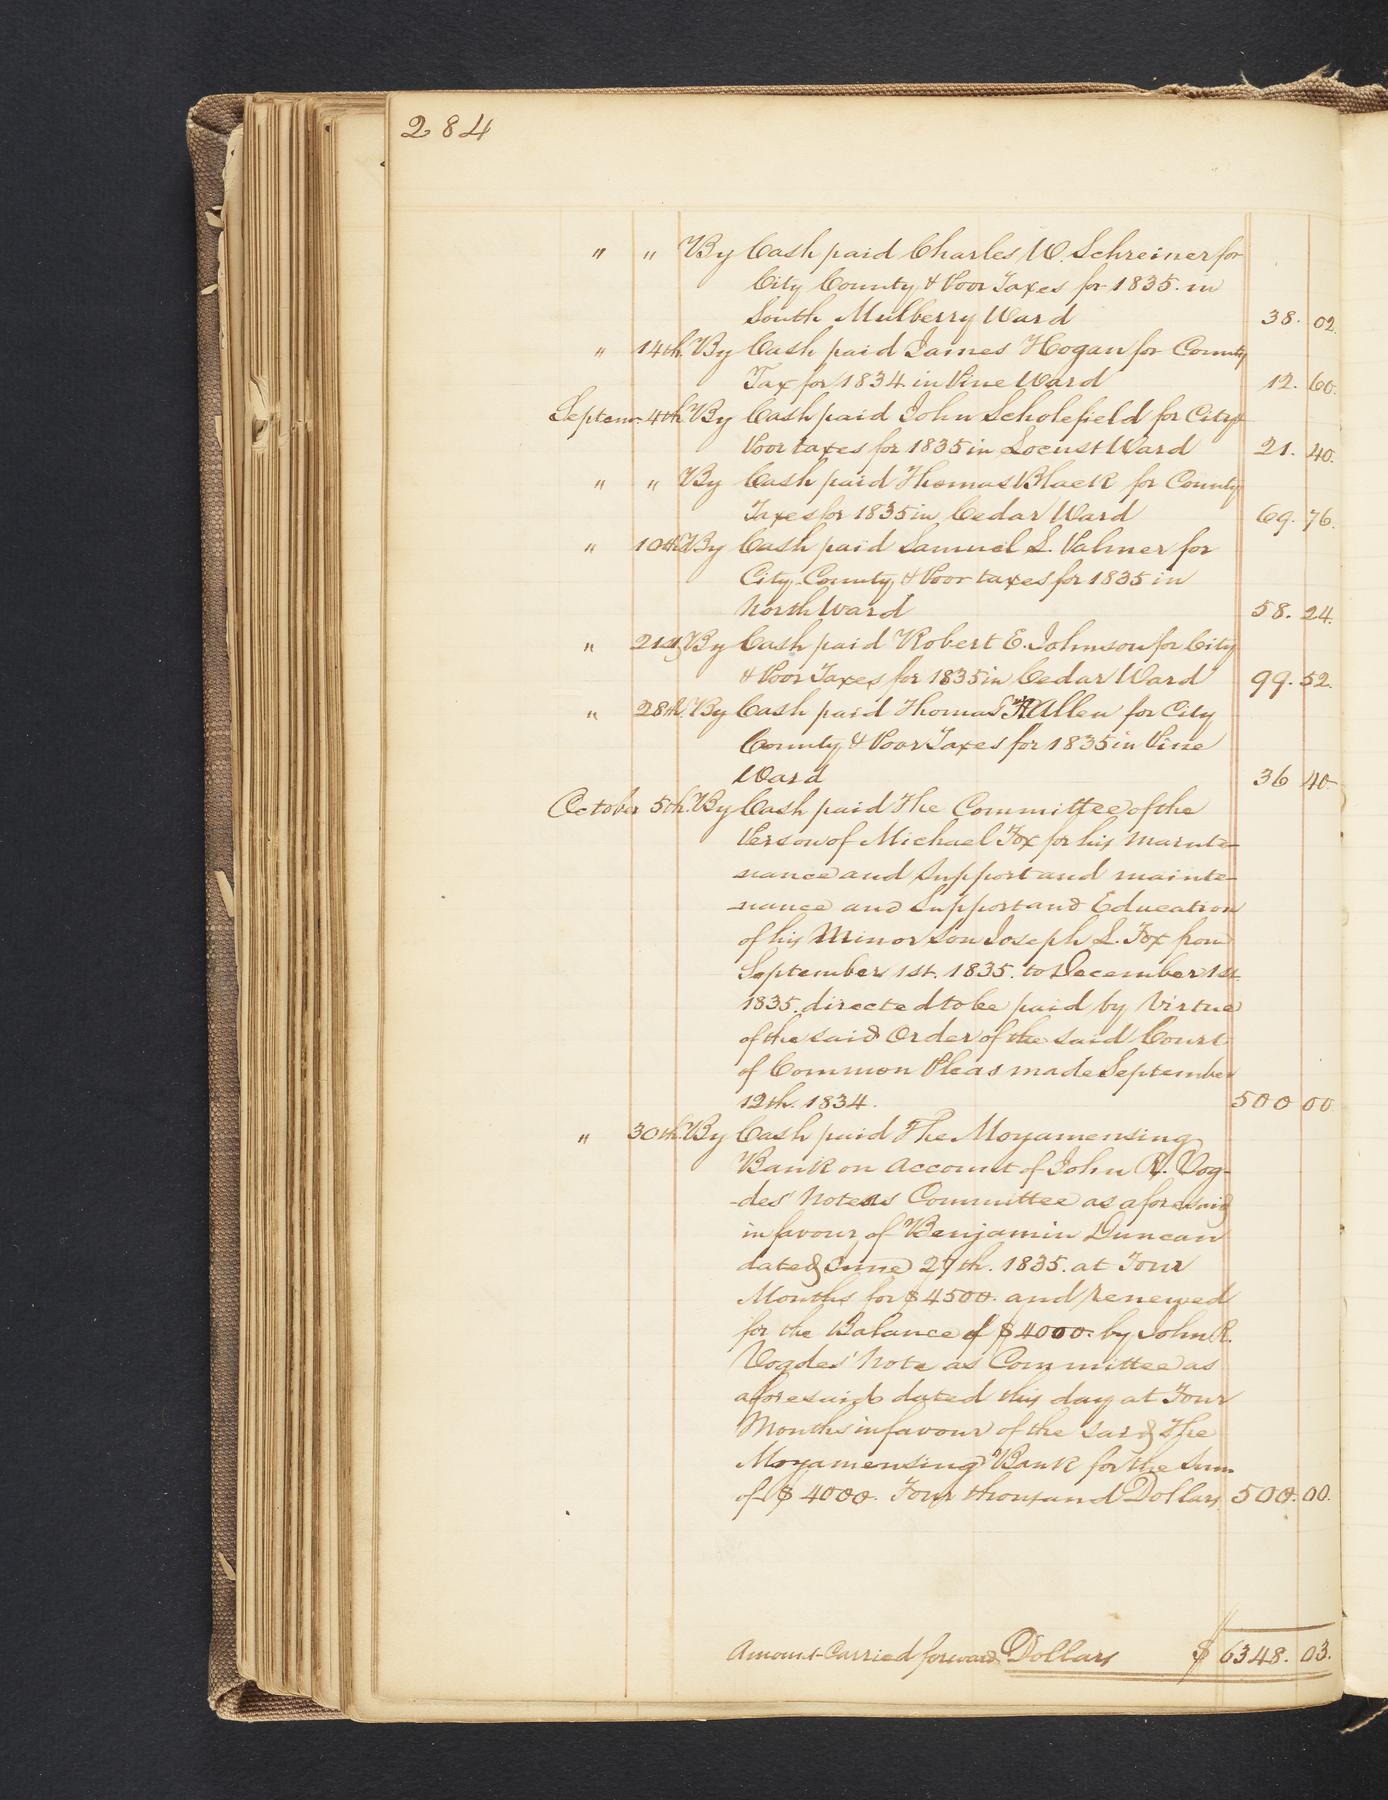 284
" " By Cash paid Charles W. Schreiner for
City County & Poor Taxes for 1835. in
South Mulberry Ward 38. 02.
" 14th. By Cash paid James Hogan for County
Tax for 1834 in Pine Ward 12. 60.
Septem. 4th. By Cash paid John Scholefield for City &
Poor taxes for 1835 in Locust Ward 21. 40.
" " By Cash paid Thomas Black for County
Taxes for 1835 in Cedar Ward 69. 76.
" 10th By Cash paid Samuel S. Palmer for
City County & Poor taxes for 1835 in
North Ward 58. 24.
" 21st By Cash paid Robert E. Johnson for City
& Poor Taxes for 1835 in Cedar Ward 99. 52.
" 28th. By Cash paid Thomas Allen for City
County & Poor Taxes for 1835 in Pine
Ward 36 40-
October 5th. By Cash paid The Committee of the
Person of Michael Fox for his Mainte-
nance and Support and mainte-
-nance and Support and Education
of his Minor Son Joseph S. Fox from
September 1st. 1835. to December 1st.
1835. directed to be paid by Virtue
of the said Order of the said Court
of Common Pleas made September
12th. 1834. 500 00.
" 30th. By Cash paid The Moyamensing
Bank on Account of John R. Vog-
-des' Note as Committee as aforesaid
in favour of Benjamin Duncan
dated June 27th. 1835. at Four
Months for $4500. and renewed
for the Balance of $4000. by John R.
Vogdes' Note as Committee as
aforesaid dated this day at Four
Months in favour of the said The
Moyamensing Bank for the Sum
of $4000. Four thousand Dollars 500. 00.
Amount Carried forward Dollars $ 6348. 03.